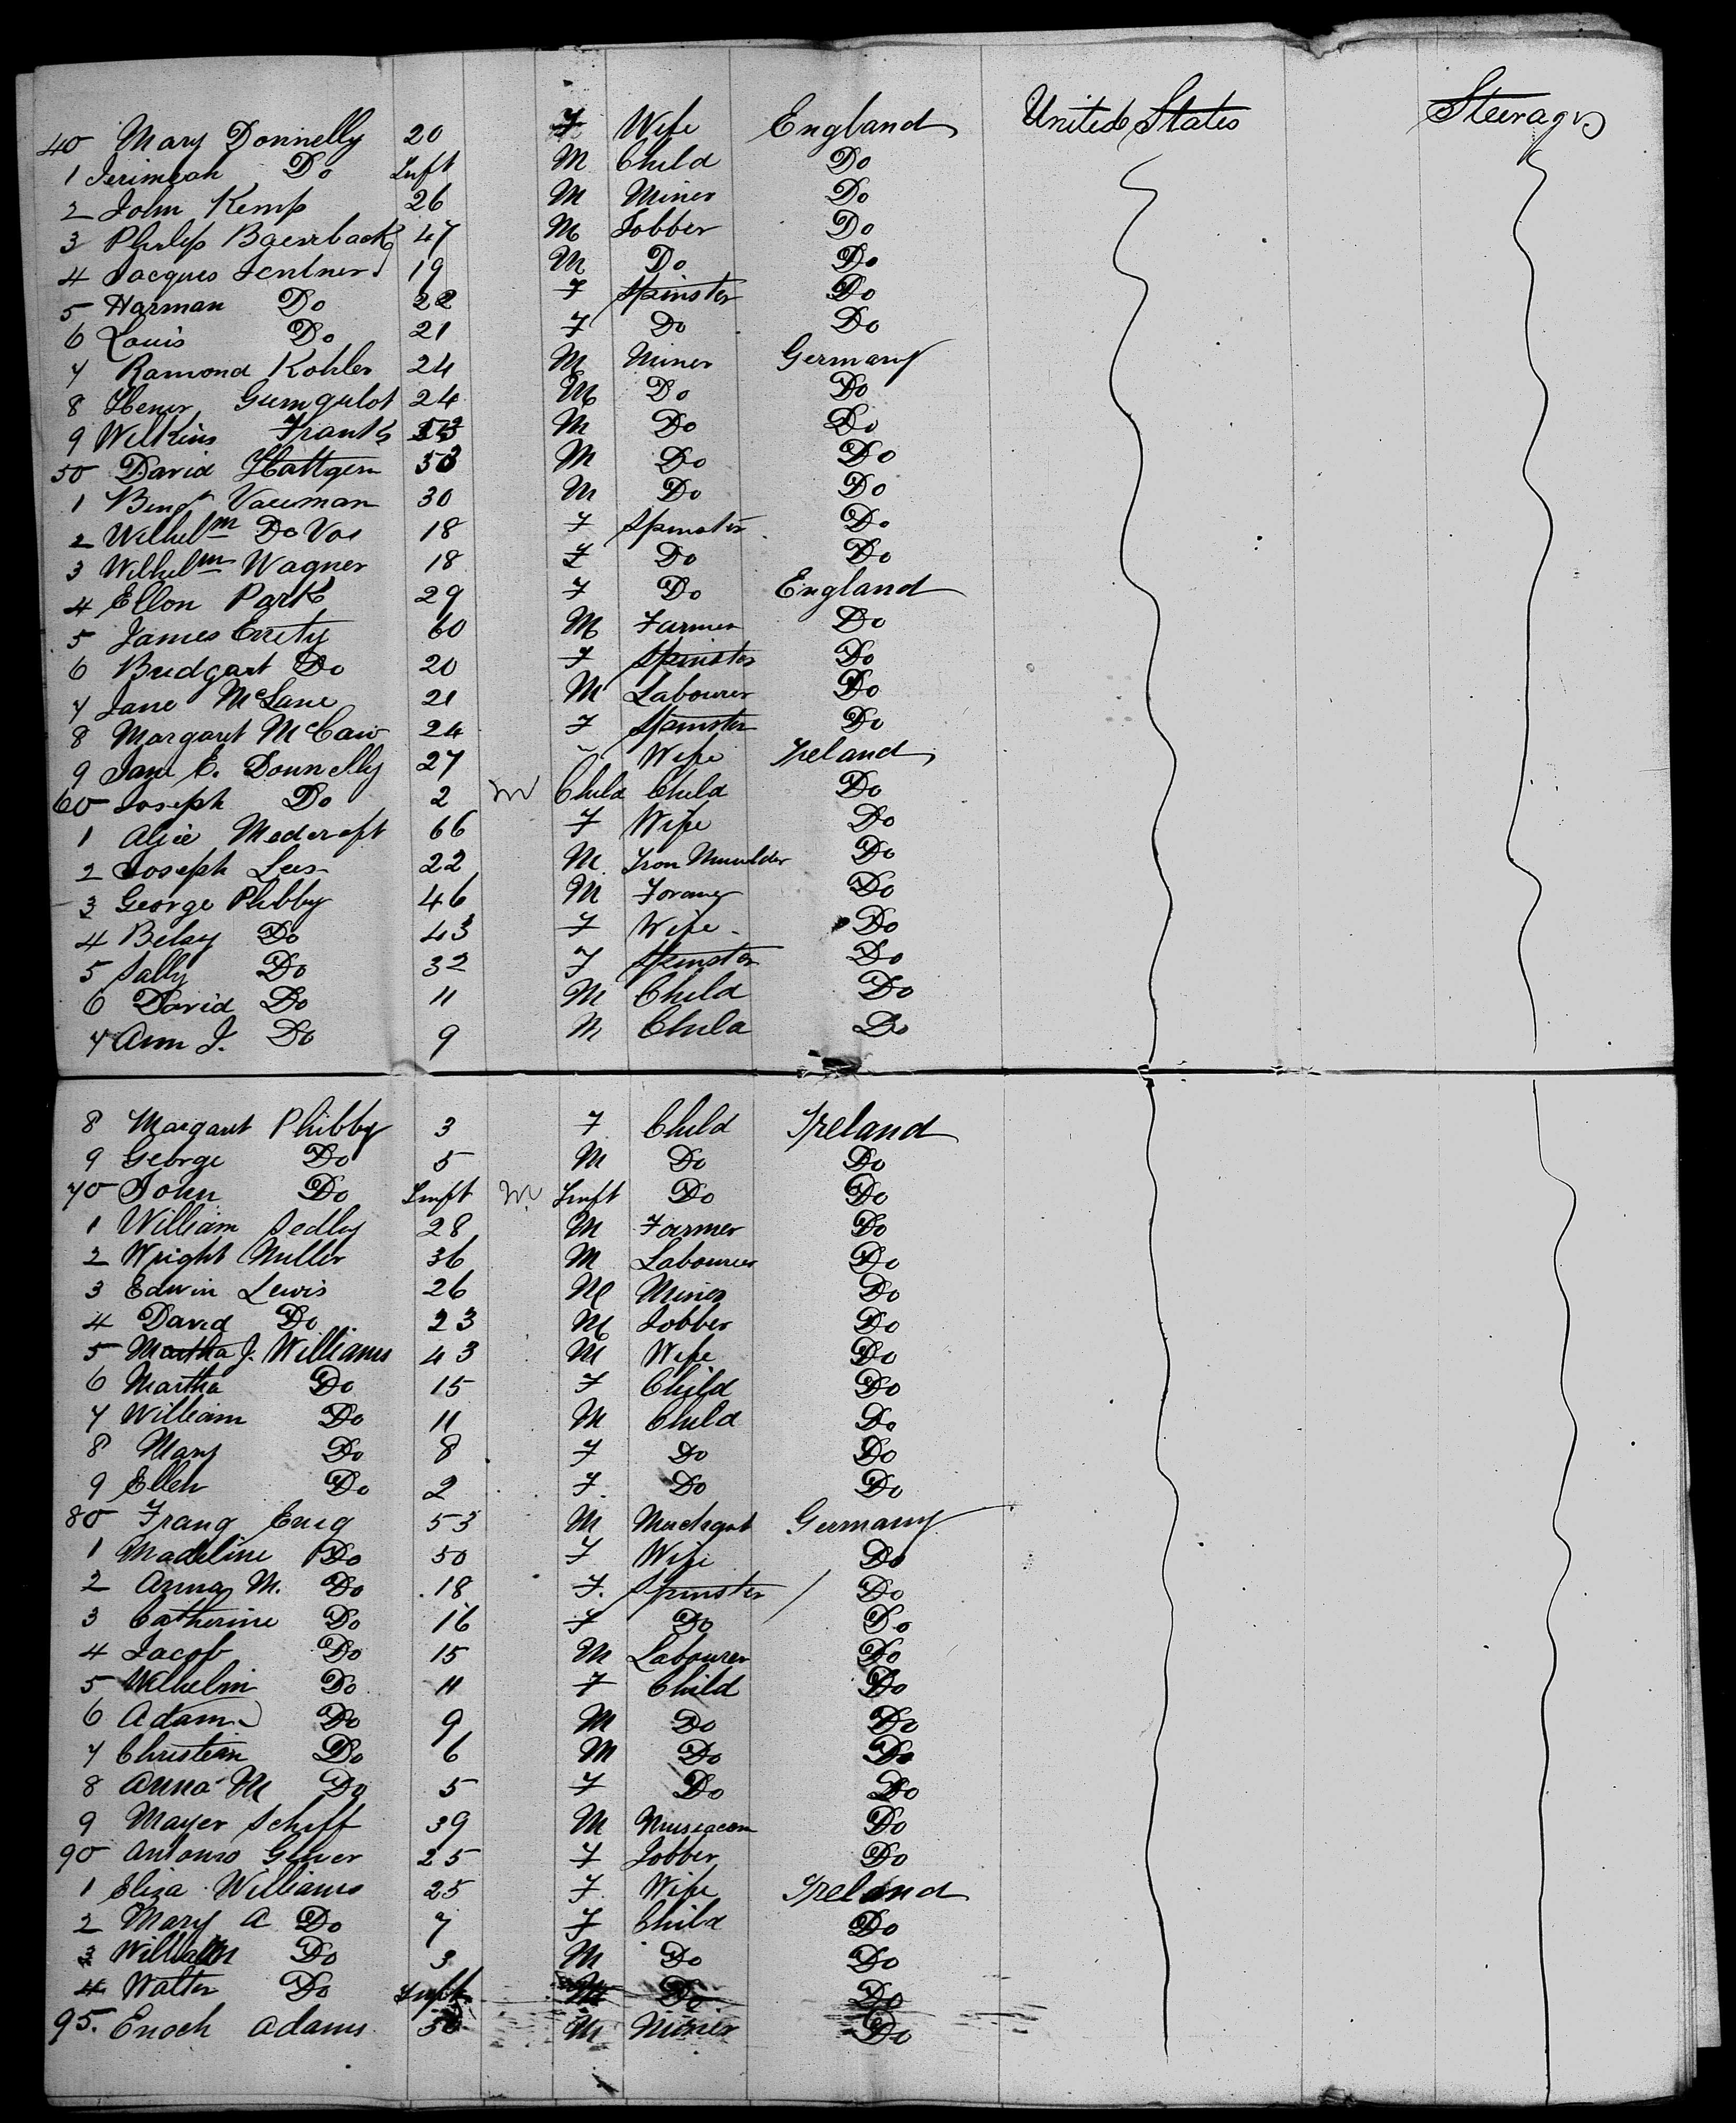 40 Mary Donnelly 20 F Wife England United States Steerage
1 Jerimeah Do Inft M Child Do
2 John Kemp 26 M Miner Do
3 Philip 47 M Jobber Do
4 Jacques Lentner 19 M Do Do
5 Harman Do 22 F Spinster Do
6 Louis Do 21 F Do Do
7 Ramond Kohler 24 M Miner Germany
8 Henry 24 M Do Do
9 Wilkins Frank M Do Do
50 David Hattgen 53 M Do Do
1 Benjn Vauman 30 M Do Do
2 Wilhelm De Vos 18 F Spinster Do
3 Wilhelm Wagner 18 F Do Do
4 Ellon Park 29 F Do England
5 James Errity 60 M Farmer Do
6 Bridgart Do 20 F Spinster Do
7 Jane McLane 21 M Labourer Do
8 Margaret McCaw 24 F Spinster Do
9 Jane E. Donnelly 27 " Wife Ireland
60 Joseph Do 2 M Child Child Do
1 Alice Medcraft 66 F Wife Do
2 Joseph Lees 22 M Iron Moulder Do
3 George Phibby 46 M Do
4 Betsy Do 43 F Wife Do
5 Sally Do 32 F Spinster Do
6 David Do 11 M Child Do
7 Ann J. Do 9 M Child Do
8 Margaret Phibby 3 F Child Ireland
9 George Do 5 M Do Do
70 John Do Inft M Inft Do Do
1 William Sedley 28 M Farmer Do
2 Wright Miller 36 M Labourer Do
3 Edwin Lewis 26 M Miner Do
4 David Do 23 M Jobber Do
5 Martha J. Williams 43 M Wife Do
6 Martha Do 15 F Child Do
7 William Do 11 M Child Do
8 Mary Do 8 F Do Do
9 Ellen Do 2 F Do Do
80 Franq 53 M Germany
1 Madeline Do 50 F Wife Do
2 Anna M. Do 18 F. Spinster Do
3 Catherine Do 16 F Do Do
4 Jacob Do 15 M Labourer Do
5 Wilhelm Do 11 F Child Do
6 Adam Do 9 M Do Do
7 Christian Do 6 M Do Do
8 Anna M Do 5 F Do Do
9 Mayer Schiff 39 M Do
90 Antonio 25 F Jobber Do
1 Eliza Williams 25 F Wife Ireland
2 Mary A Do 7 F Child Do
3 William Do 3 M Do Do
4 Walter Do Inft M Do Do
95. Enoch Adams M Miner Do